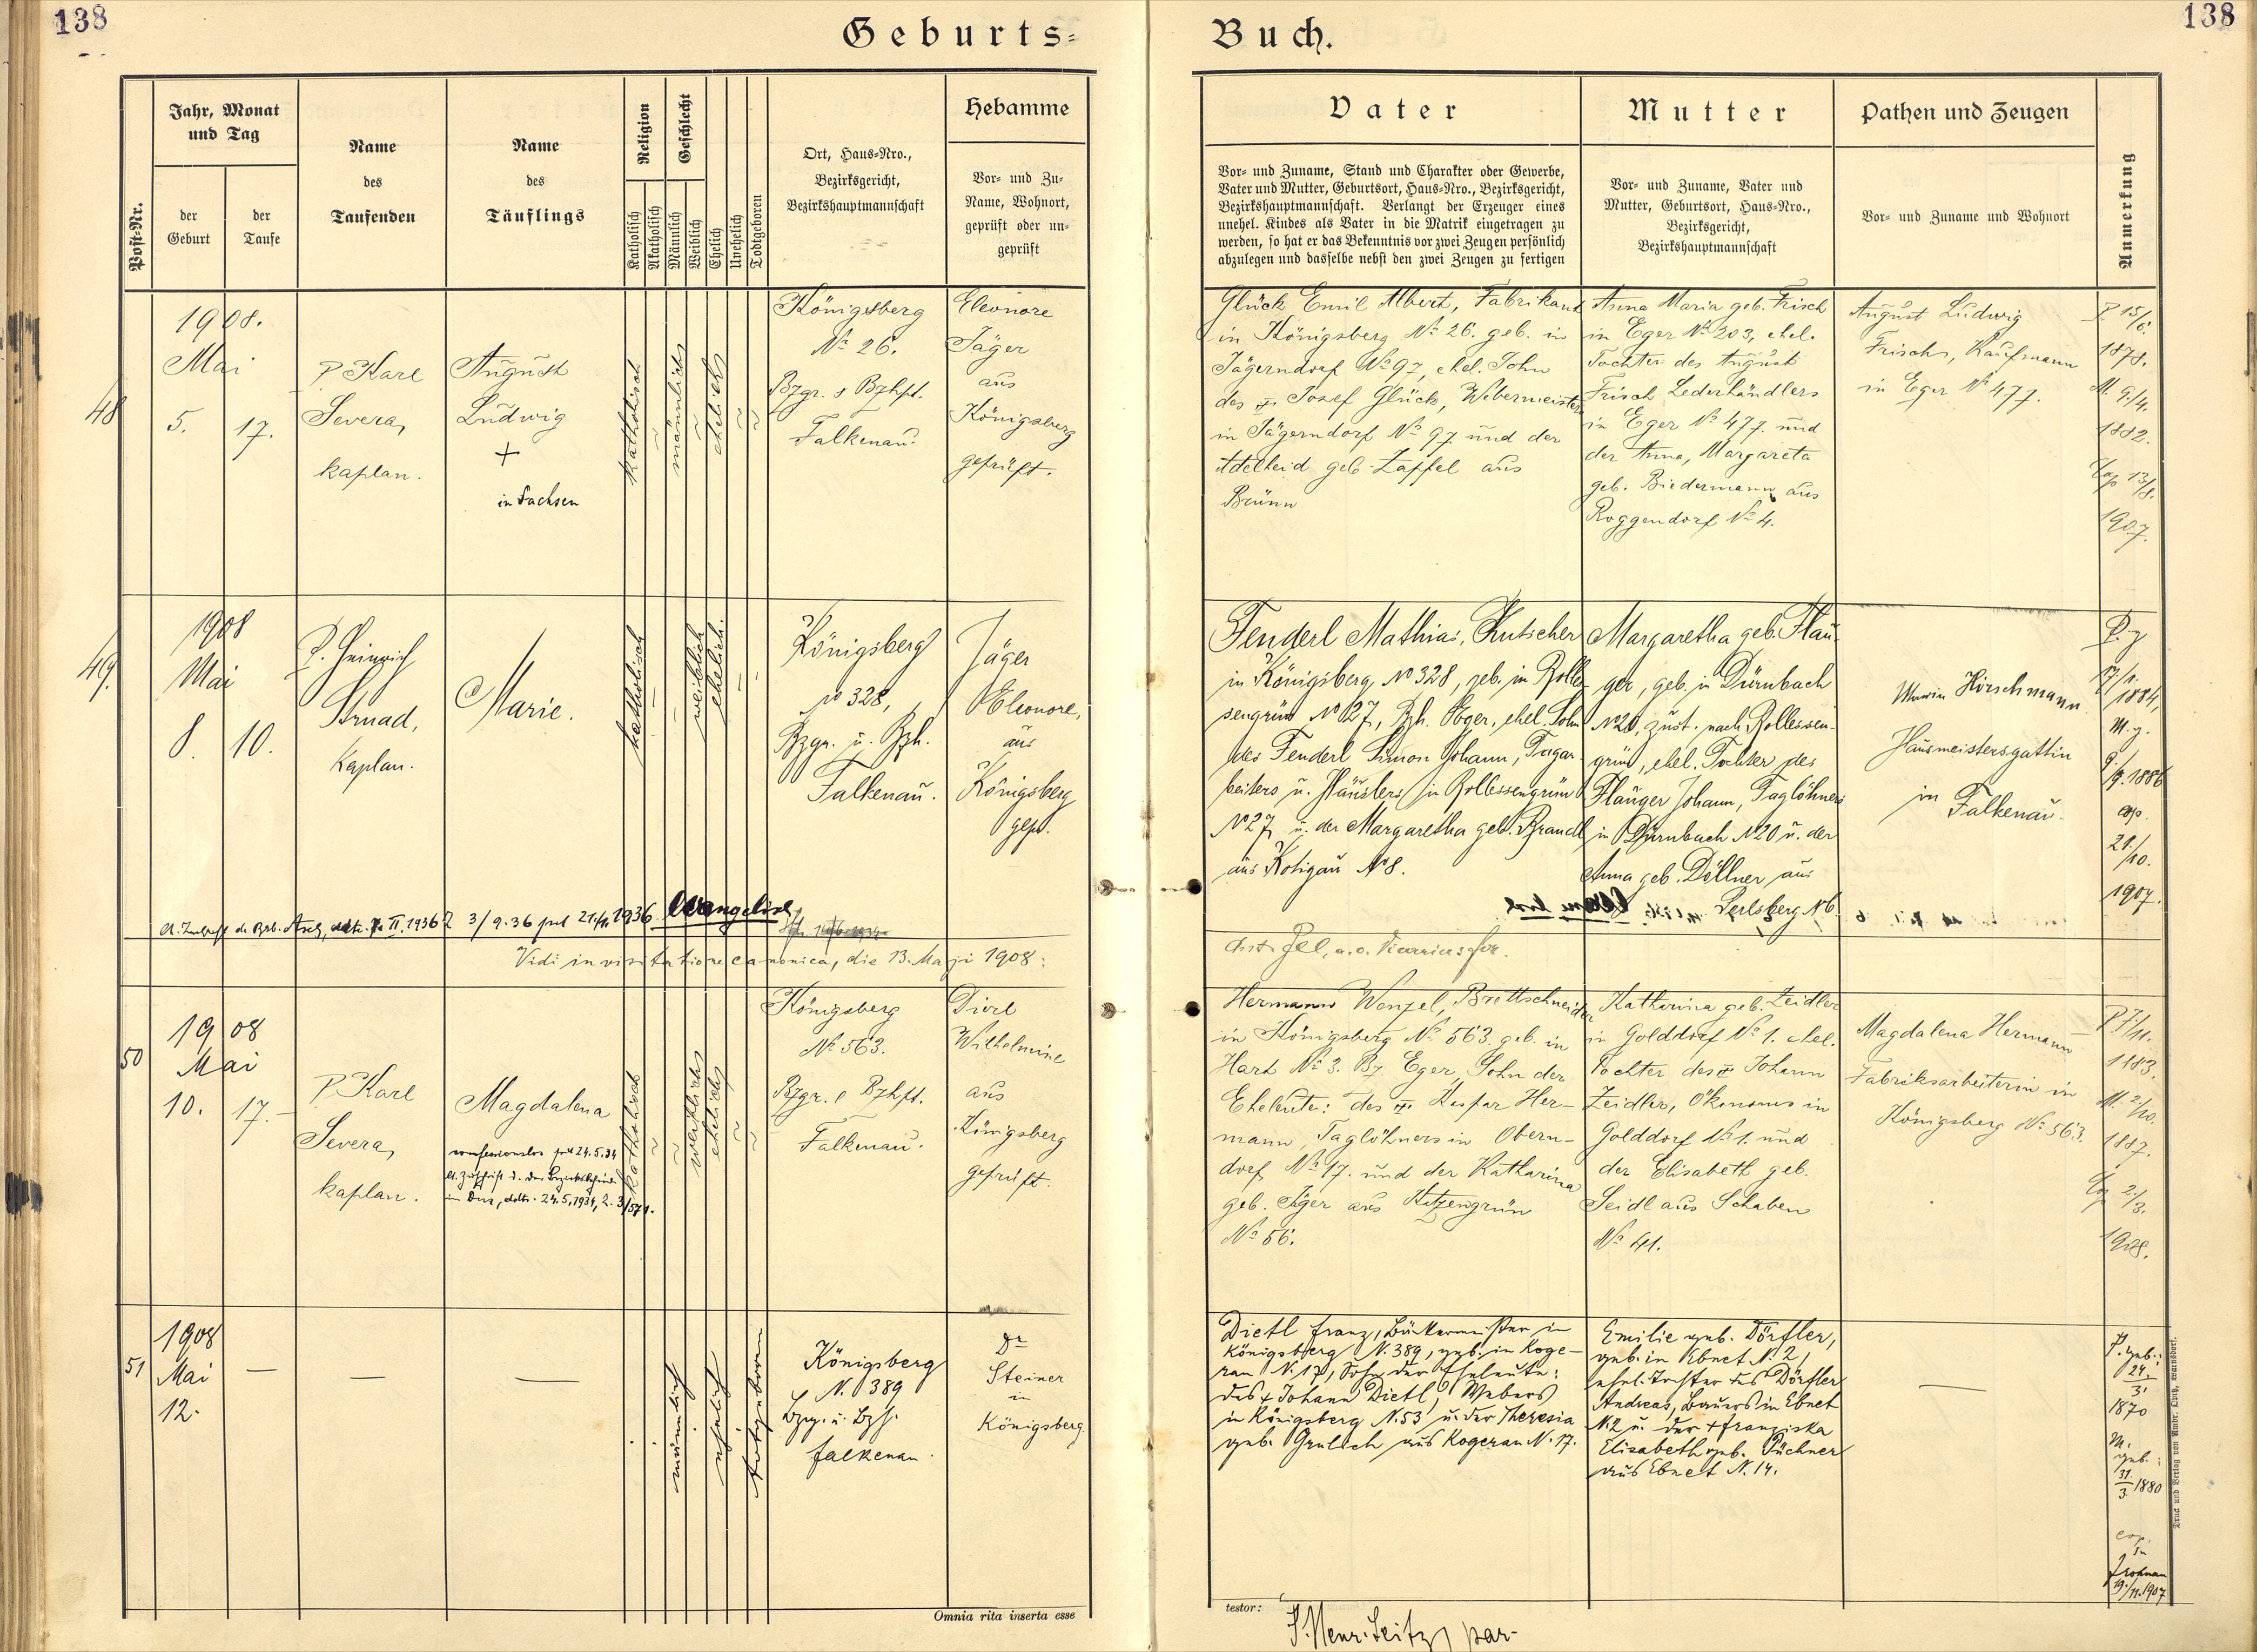 138
Geburts-
Buch.
138
Post-Nr.
Jahr, Monat
und Tag
der
Geburt
der
Taufe
Name
des
Taufenden
Name
des
Täuflings
Religion
Katholisch
Akatholisch
Geschlecht
Männlich
Weiblich
Ehelich
Unehelich
Todtgeboren
Ort, Haus-Nro.,
Bezirksgericht,
Bezirkshauptmannschaft
Hebamme
Vor- und Zu-
Name, Wohnort,
geprüft oder un-
geprüft
Vater
Vor- und Zuname, Stand und Charakter oder Gewerbe,
Vater und Mutter, Geburtsort, Haus-Nro., Bezirksgericht,
Bezirkshauptmannschaft. Verlangt der Erzeuger eines
unehel. Kindes als Vater in die Matrik eingetragen zu
werden, so hat er das Bekenntnis vor zwei Zeugen persönlich
abzulegen und dasselbe nebst den zwei Zeugen zu fertigen
Mutter
Vor- und Zuname, Vater und
Mutter, Geburtsort, Haus-Nro.,
Bezirksgericht,
Bezirkshauptmannschaft
Pathen und Zeugen
Vor- und Zuname und Wohnort
Anmerkung
48
1908.
Mai
5. 17.
P. Karl
Severa,
kaplan.
August
Ludwig
+
in Sachsen
katholisch
männlich
ehelich
Königsberg
No 26.
Bzgr. & Bzhpt.
Falkenau.
Eleonore
Jäger
aus
Königsberg
geprüft.
Glück Emil Albert, Fabrikant
in Königsberg No 26. geb. in
Jägerndorf No 97, ehel. Sohn
des Josef Glück, Webermeisters
in Jägerndorf No 97 und der
Adelheid geb. Zappel aus
Brünn
Anna Maria geb. Frisch
in Eger No 203, ehel.
Tochter des August
Frisch Lederhändlers
in Eger No 477. und
der Anna, Margareta
geb. Biedermann aus
Roggendorf No 4.
August Ludwig
Frisch, Kaufmann
in Eger No 477.
P. 15/6.
1878.
M. 9/4.
1882.
Cop 13/8.
1907.
49.
1908
Mai
8. 10.
P. Heinrich
Strnad,
Kaplan.
Marie.
katholisch
weiblich
ehelich.
Königsberg
No 328,
Bzgr. u. Bzh.
Falkenau.
Jäger
Eleonore,
aus
Königsberg
gepr.
Fenderl Mathias, Kutscher
in Königsberg No 328, geb. in Rolles-
sengrün No 27, Bzh. Eger, ehel. Sohn
des Fenderl Simon Johann, Tagar-
beiters u. Häuslers in Rollessengrün
No 27 u. der Margaretha geb. Brandl
aus Kotigau No 8.
Margaretha geb. Flau-
ger, geb. in Dürnbach
No 20, zust. nach Rollessen-
grün, ehel. Tochter des
Flauger Johann, Taglöhners
in Dürnbach No 20 u. der
Anna geb. Döllner aus
Perlsberg No 6.
Maria Hirschmann
Hausmeistersgattin
in Falkenau.
1884,
M. g.
9./9. 1886
cop.
21./10.
1907.
3/9.36 1936 Evangelisch
Vidi in visitatione canonica, die 13. Maji 1908:
50
1908
Mai
10. 17.
P. Karl
Severa,
kaplan.
Magdalena
konfessionslos seit 24.5.34
katholisch
weiblich
ehelich
Königsberg
No 563.
Bzgr. & Bzhpt.
Falkenau.
Dierl
Wilhelmine
aus
Königsberg
geprüft.
Hermann Wenzel, Brettschneider
in Königsberg No 563. geb. in
Hart No 3. Bz. Eger, Sohn der
Eheleute: des Kaspar Her-
mann, Taglöhners in Obern-
dorf No 17. und der Katharina
geb. Jäger aus Kitzengrün
No 56.
Katharina geb. Zeidler
in Golddorf No 1. ehel.
Tochter des Johann
Zeidler, Ökonoms in
Golddorf No 1. und
der Elisabeth geb.
Seidl aus Schaben
No 41.
Magdalena Hermann
Fabriksarbeiterin in
Königsberg No 563.
P. 7/11.
1883.
M. 2/10.
1887.
Cop 2/3.
1908.
51
1908
Mai
12.
männlich
ehelich
todtgeboren
Königsberg
N. 389
bzg. u. bzh.
Falkenau.
Dr
Steiner
in
Königsberg.
Dietl Franz, Bäckermeister in
Königsberg N. 389, geb. in Koge-
rau N. 17, Sohn der Eheleute:
des + Johann Dietl, Webers
in Königsberg N. 53 u. der Theresia
geb. Grulich aus Kogerau N. 17.
Emilie geb. Dörfler,
geb. in Ebnet N. 2,
ehel. Tochter des Dörfler
Andreas, Bauers in Ebnet
N. 2 u. der + Franziska
Elisabeth geb. Püchner
aus Ebnet N. 14.
P. geb.:
24./3.
1870
M.
geb.:
31./3. 1880
cop.
in
Frohnau
19./11. 1907
Omnia rita inserta esse
testor:
P. Henr. Seitz, par.
Druck und Verlag von Ambr. Opitz, Warnsdorf.